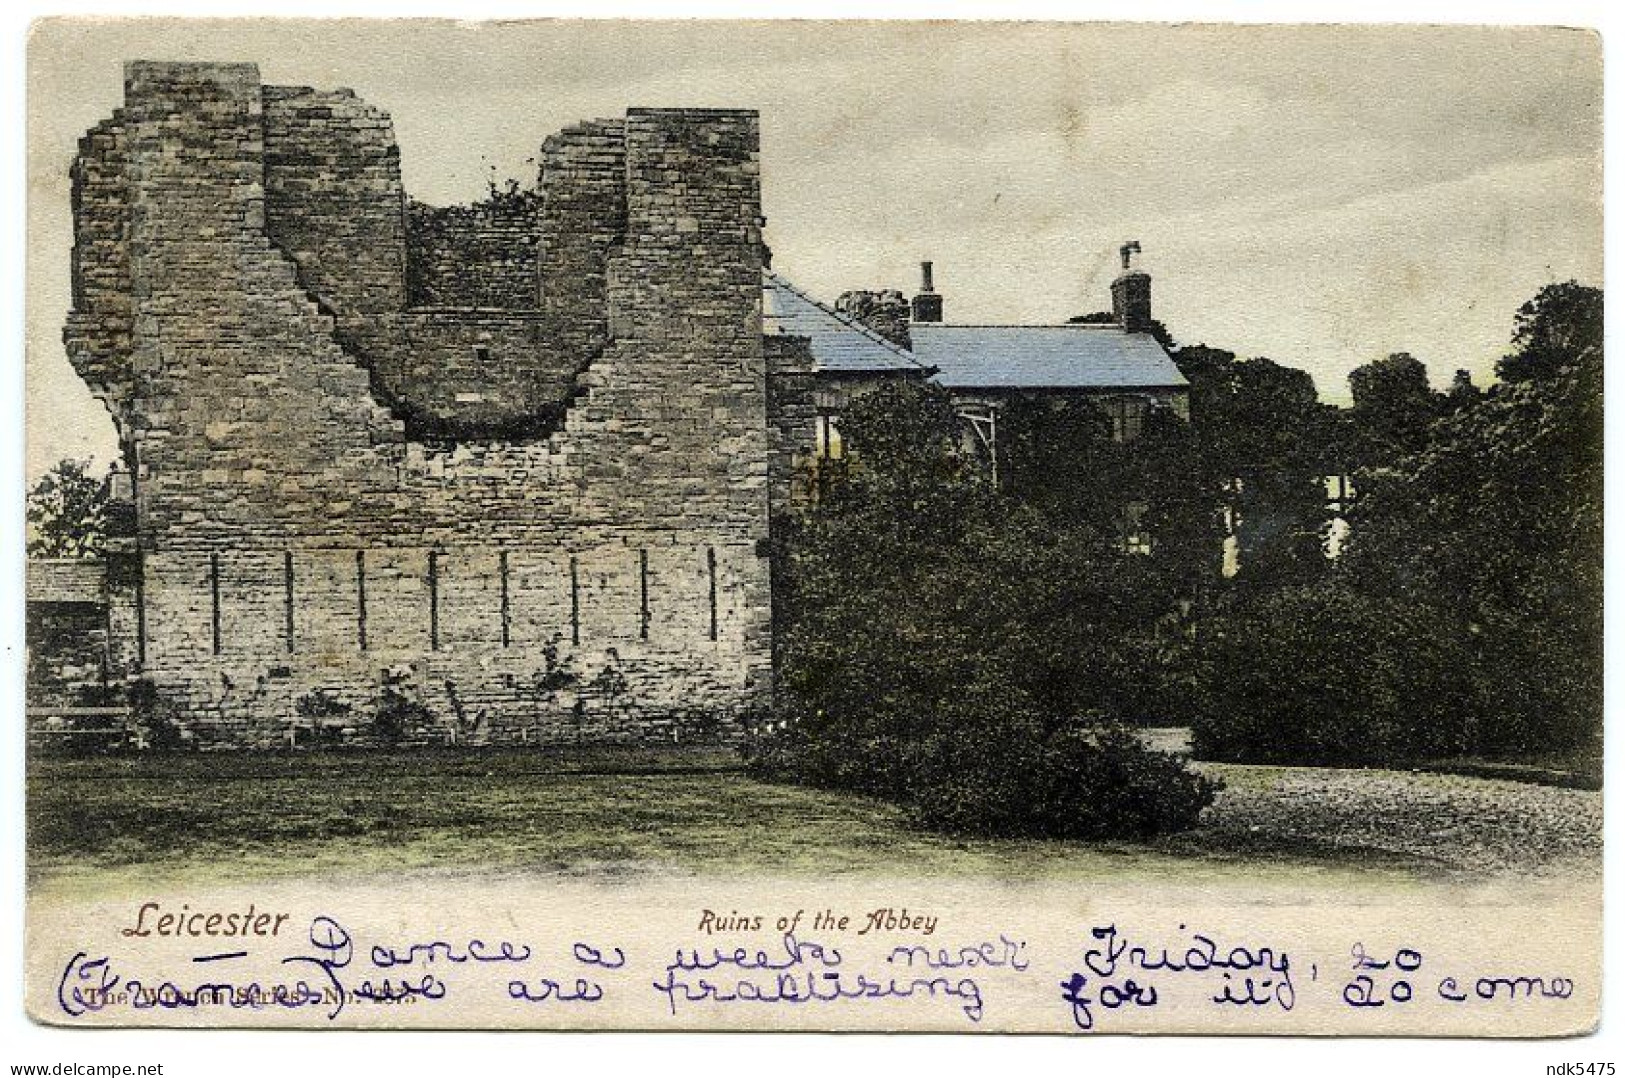 Leicester Ruins of the Abbey
— Dance a week next Friday, so
(Frances) we are practising for it, do come
The Wrench Series No.
www.delcampe.net
ndk5475